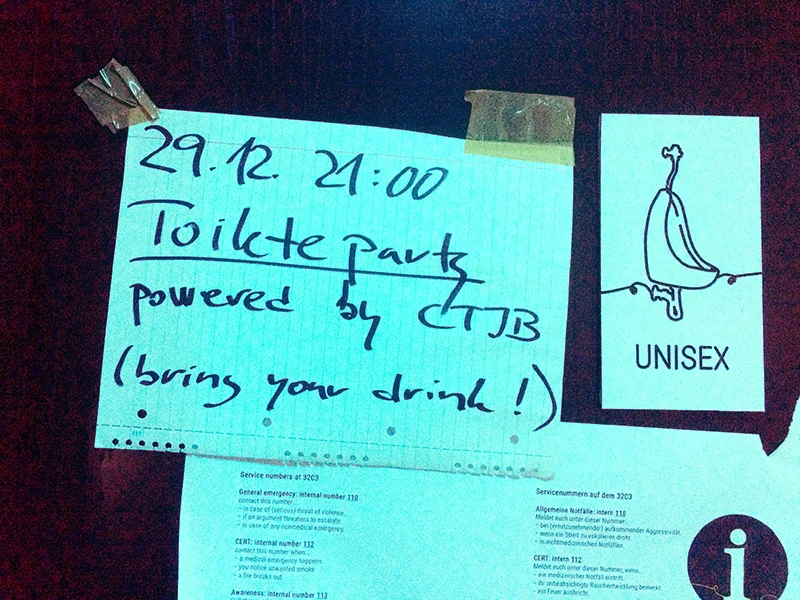 29.12. 21:00
Toilete party
powered by CTJB
(bring your drink!)
UNISEX
Service numbers at 32C3
General emergency: internal number 110
contact this number...
– in case of (serious) threat of violence,
– if an argument threatens to escalate.
– in case of any nonmedical emergency.
CERT: internal number 112
contact this number when...
– a medical emergency happens
– you notice unwanted smoke
– a fire breaks out
Awareness: internal number 113
Servicenummern auf dem 32C3
Allgemeine Notfälle: intern 110
Meldet euch unter dieser Nummer...
– bei (ernstzunehmender) aufkommender Aggressivität,
– wenn ein Streit zu eskalieren droht.
– in nichtmedizinischen Notfällen.
CERT: intern 112
Meldet euch unter dieser Nummer, wenn...
– ein medizinischer Notfall eintritt.
– ihr unbeabsichtigte Rauchentwicklung bemerkt
– ein Feuer ausbricht.
i